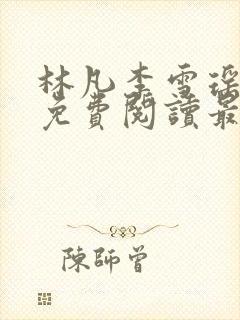 林凡李雪瑶
免費閱讀最
陳師曾